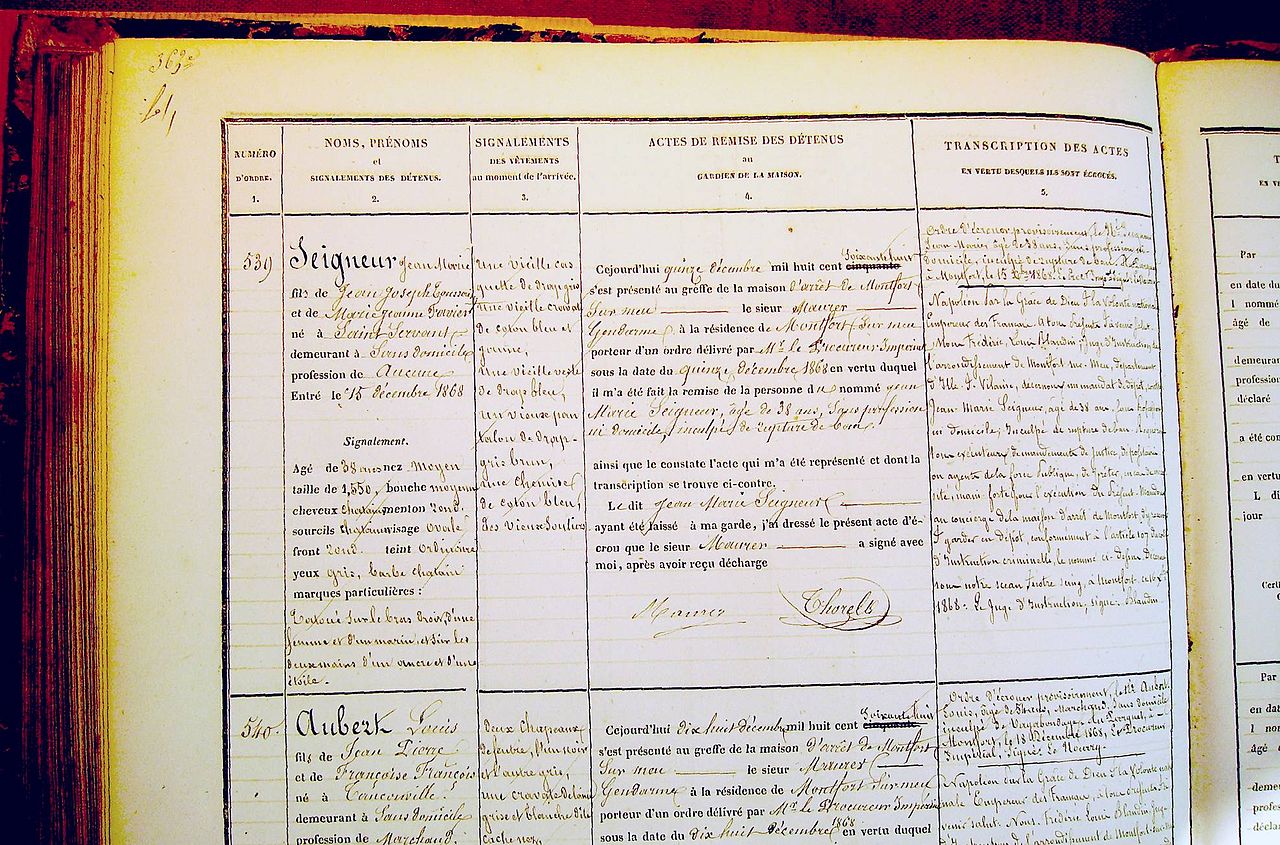 363e
NUMÉRO
D'ORDRE.
1.
NOMS, PRÉNOMS
et
SIGNALEMENTS DES DÉTENUS.
2.
SIGNALEMENTS
DES VÊTEMENTS
au moment de l'arrivée.
3.
ACTES DE REMISE DES DÉTENUS
au
GARDIEN DE LA MAISON.
4.
TRANSCRIPTION DES ACTES
EN VERTU DESQUELS ILS SONT ÉCROUÉS.
5.
539
Seigneur Jean Marie
fils de Jean Joseph
et de Marie Jeanne
né à Saint Servant
demeurant à Sans domicile
profession de Aucune
Entré le 15 décembre 1868
Signalement.
Agé de 38 ans nez moyen
taille de 1,550, bouche moyenne
cheveux chatain menton rond.
sourcils chatain visage ovale
front rond. teint ordinaire
yeux gris, barbe chatain
marques particulières :
Tatoué sur le bras droit, d'une
femme et d'un marin et sur les
deux mains d'un ancre et d'une
étoile.
Une vieille cas
quette de drap gris
une vieille cravate
de coton bleu et
jaune,
une vieille veste
de drap bleu,
un vieux pan
talon de drap
gris brun,
une chemise
de coton bleu,
des vieux souliers
Cejourd'hui quinze décembre mil huit cent cinquante soixante huit
s'est présenté au greffe de la maison d'arrêt de Montfort
sur meu le sieur Maurer
Gendarme à la résidence de Montfort sur meu
porteur d'un ordre délivré par Mr le Procureur Impérial
sous la date du quinze décembre 1868 en vertu duquel
il m'a été fait la remise de la personne du nommé Jean
Marie Seigneur, âgé de 38 ans, sans profession
ni domicile, inculpé de rupture de ban.
ainsi que le constate l'acte qui m'a été représenté et dont la
transcription se trouve ci-contre.
Le dit Jean Marie Seigneur
ayant été laissé à ma garde, j'ai dressé le présent acte d'é-
crou que le sieur Maurer a signé avec
moi, après avoir reçu décharge
Maurer
Thorels
Ordre d'écrouer provisoirement, le Né Seigneur
Jean Marie, âgé de 38 ans, sans profession ni
domicile, inculpé de rupture de ban.
à Montfort, le 15 Xbre 1868.
Napoléon par la Grâce de Dieu & la volonté nationale
Empereur des Français. A tous présents & à venir salut.
Nous Frédéric, Louis Blandin, Juge d'Instruction de
l'arrondissement de Montfort-sur-Meu, département
d'Ille-&-Vilaine, décernons un mandat de dépôt, contre
Jean Marie Seigneur, âgé de 38 ans, sans profession
ni domicile, Inculpé de rupture de ban.
tous exécuteurs de mandements de Justice,
ou agents de la force publique, de prêter,
main forte pour l'exécution du présent Mandat
au concierge de la maison d'arrêt de Montfort,
garder en dépôt, conformément à l'article 107 du Code
d'Instruction criminelle, le nommé ci-dessus
sous notre sceau & notre seing, à Montfort, ce 15 Xbre
1868. Le Juge d'Instruction, signé Blandin
540
Aubert Louis
fils de Jean Pierre
et de Françoise François
né à Tancarville
demeurant à Sans domicile
profession de Marchand.
Deux chapeaux
de feutre, l'un noir
et l'autre gris,
une cravate de laine
grise et blanche dite
cachenez,
Cejourd'hui dix huit décembre mil huit cent soixante huit
s'est présenté au greffe de la maison d'arrêt de Montfort
sur meu le sieur Maurer
Gendarme à la résidence de Montfort sur meu
porteur d'un ordre délivré par Mr le Procureur Impérial
sous la date du dix huit décembre 1868 en vertu duquel
Ordre d'écrouer provisoirement, le Né Aubert
Louis, Marchand, Sans domicile
inculpé de Vagabondage. Au Parquet, à
Montfort, le 18 Décembre 1868, Le Procureur
Impérial, signé Le Nourry.
Napoléon par la Grâce de Dieu & la Volonté natio
nale Empereur des Français, à tous présents &
venir salut. Nous, Frédéric Louis Blandin, Juge
d'Instruction de l'arrondissement de Montfort-sur-Meu
Par
en date du
l nommé
âgé de
demeurant
profession
déclaré
a été con
en vertu
L di
jour
Certi
Par
en dat
l nom
âgé
deme
profes
décla